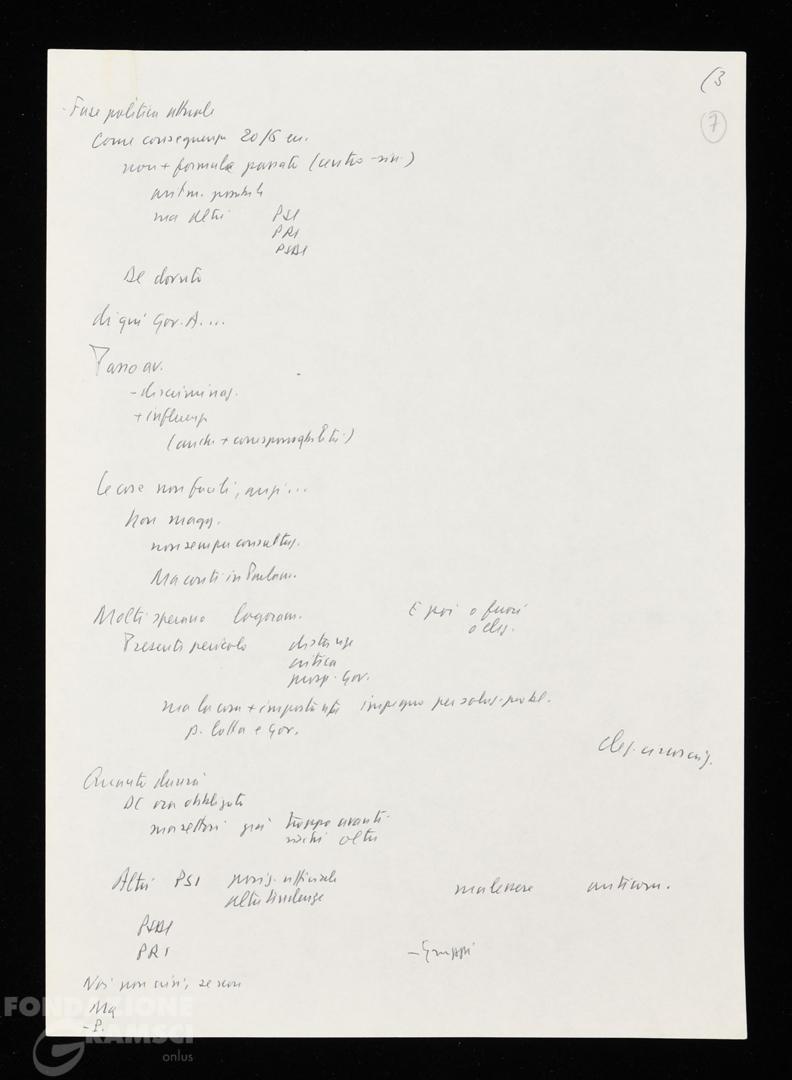 (3
7
- Fase politica attuale
Come conseguenza 20/6 ecc.
non + formula passata (centro-sin.)
aritm. possibile
ma altri PSI
PRI
PSDI
DC dovuto
di qui Gov. A. ...
Passo av.
- discriminaz.
+ influenza
(anche + corresponsabilità)
Le cose non facili, anzi ...
Non magg.
non sempre consultaz.
Ma conti in Parlam.
Molti sperano logoram. E poi o fuori
o elez.
Presenti pericolo distanze
critica
prosp. Gov.
ma la cosa + importante impegno per soluz. probl.
p. lotta e Gov.
Elez.
Quanto durerà
DC ora obbligata
ma settori già troppo avanti
altri
Altri PSI posiz. ufficiale malessere anticom.
altre tendenze
PSDI
PRI - Gruppi
Noi non crisi, se non
Ma
- P.
FONDAZIONE
GRAMSCI
onlus